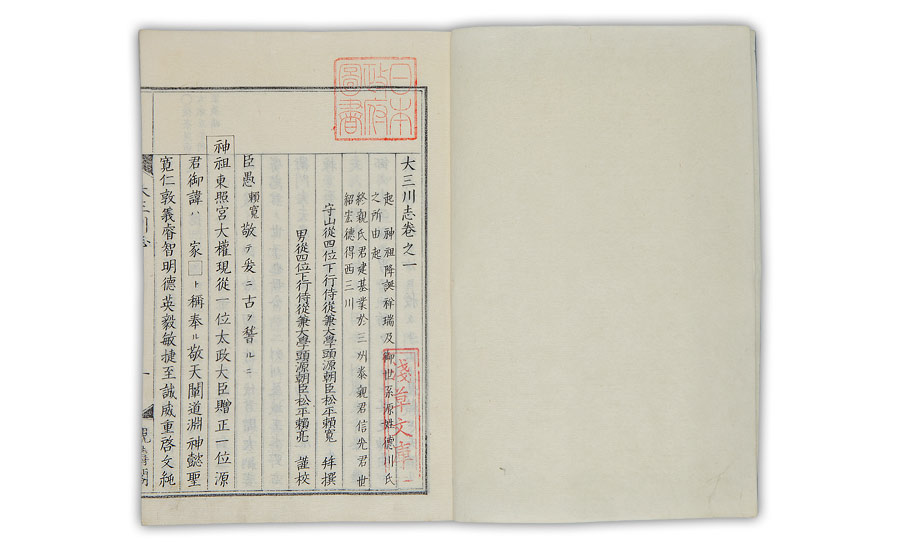 大三川志卷之一
表 神祖降誕祥瑞及御世系源姓德川氏
之所由起
終親氏君建基業於三州泰親君信光君世
紹宏德得西三川
守山從四位下行侍從兼大學頭源朝臣松平賴寬 拜撰
男從四位下行侍從兼大學頭源朝臣松平賴亮 謹校
臣愚賴寬敬テ爰ニ古ヲ譬ルニ
神祖東照宮大權現從一位太政大臣贈正一位源
君御諱ハ 家 ト稱奉ル敬天闡道淵神懿聖
寬仁敦義睿智明德英毅敏捷至誠威重啓文純
大三川志
一
日本
政府
圖書
淺草文庫